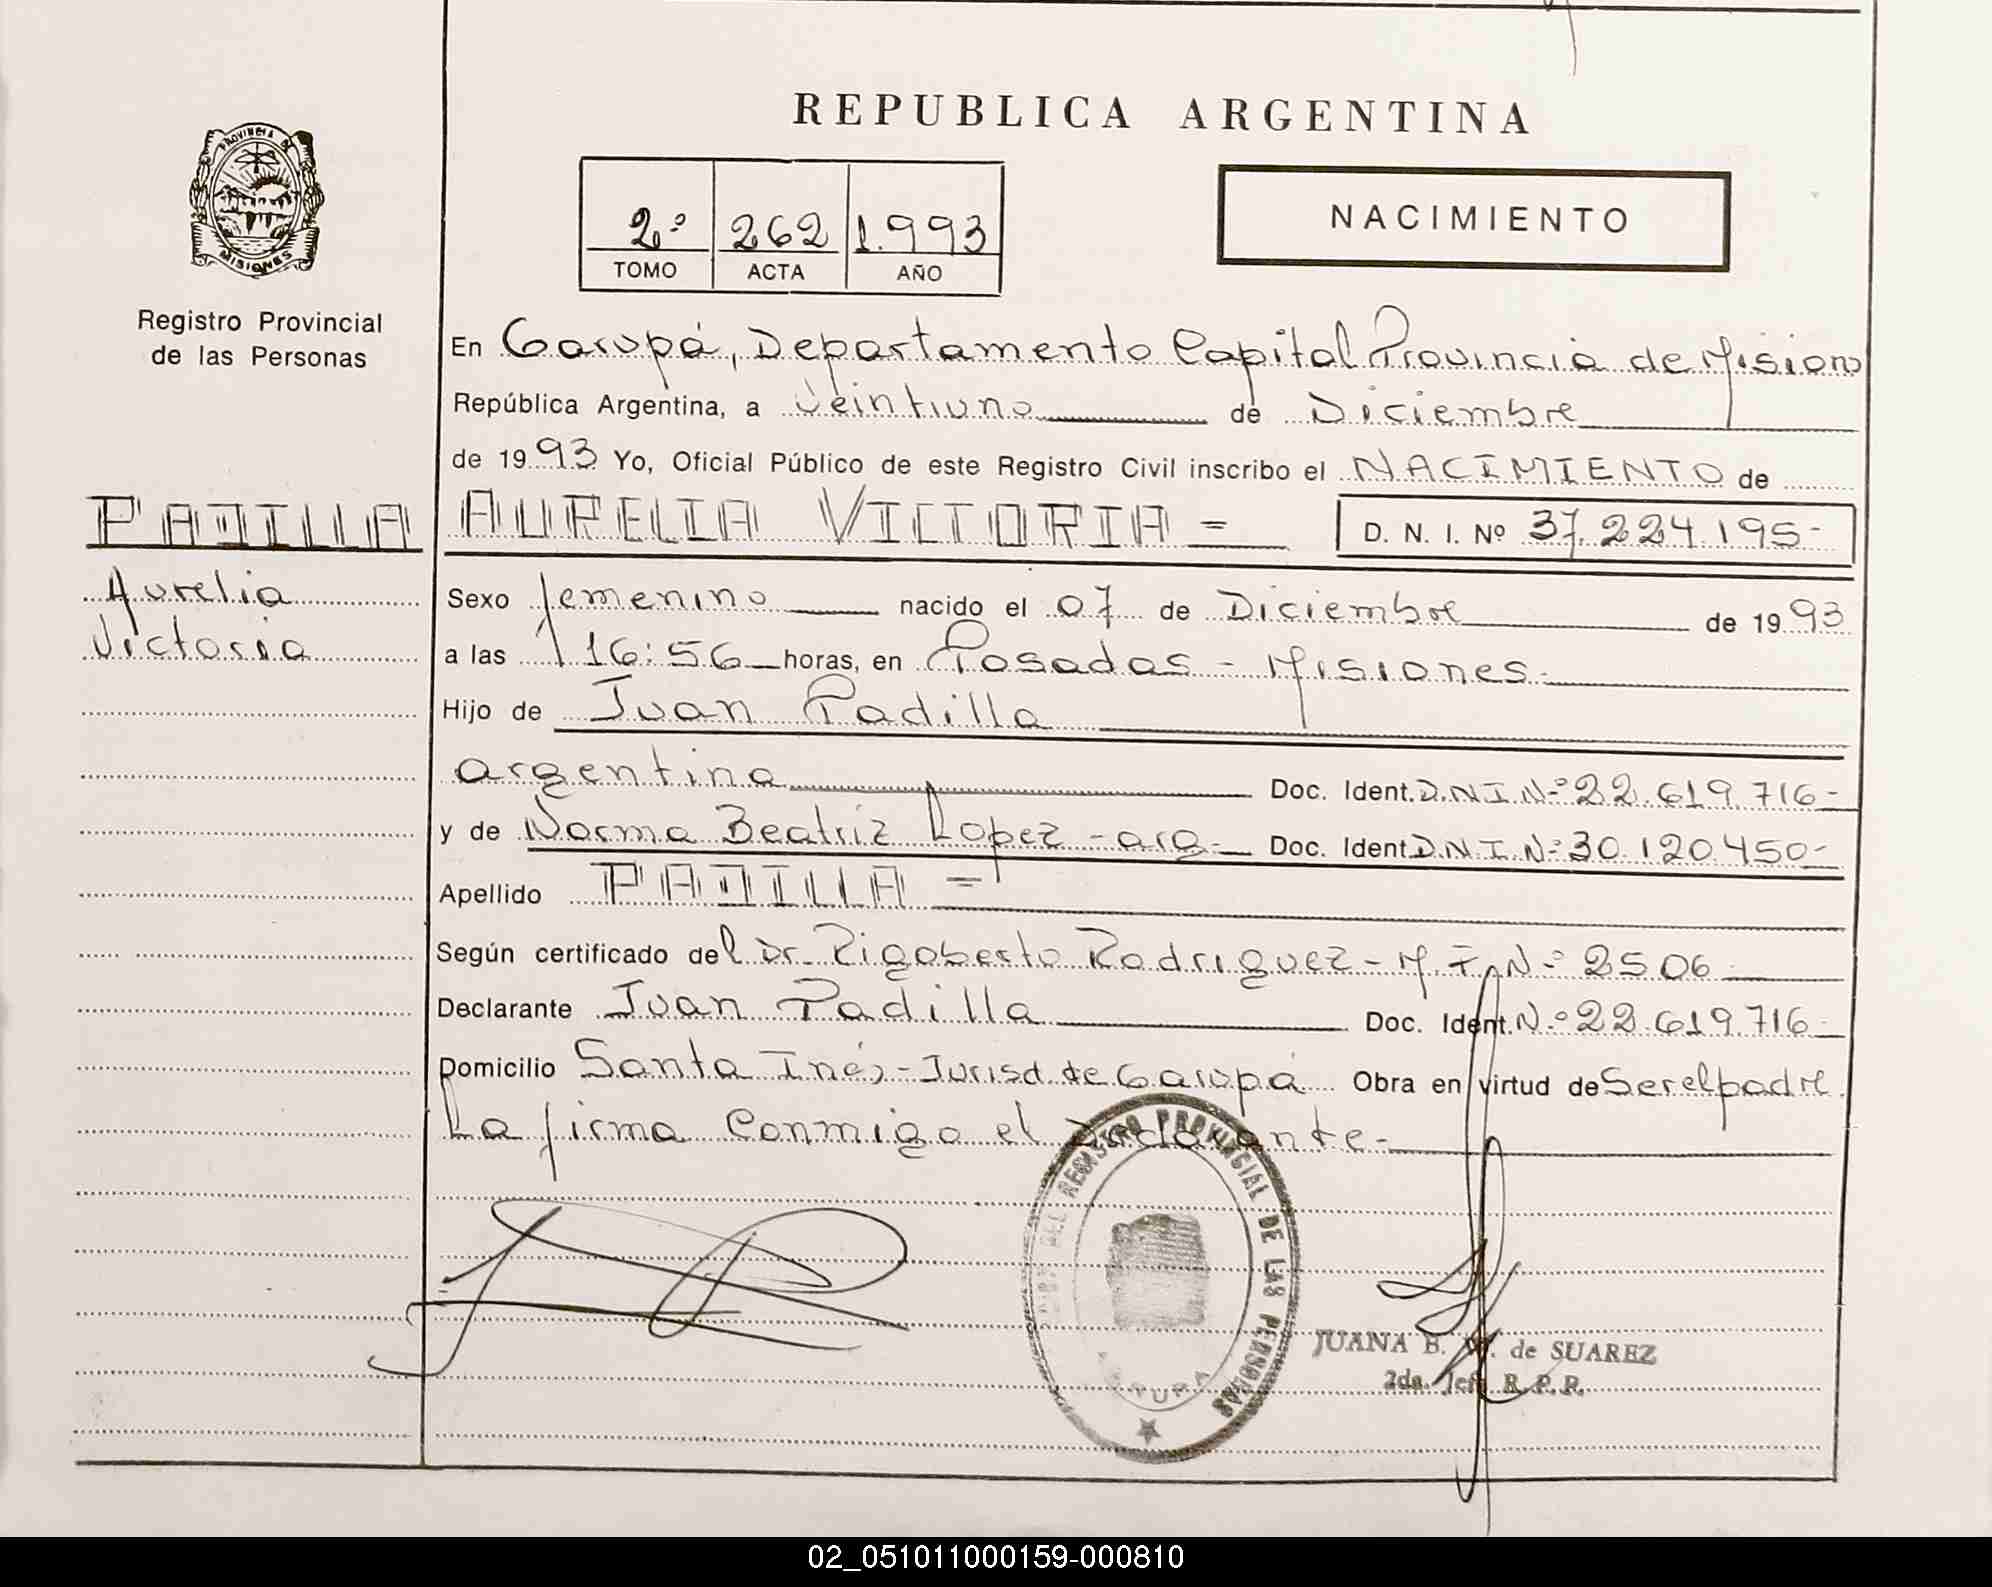 REPUBLICA ARGENTINA
PROVINCIA DE
MISIONES
Registro Provincial
de las Personas
2º 262 1.993
TOMO ACTA AÑO
NACIMIENTO
En Garupá, Departamento Capital Provincia de Mision
República Argentina, a Veintiuno de Diciembre
de 1993 Yo, Oficial Público de este Registro Civil inscribo el NACIMIENTO de
PADILLA
Aurelia
Victoria
AURELIA VICTORIA =
D. N. I. Nº 37.224.195-
Sexo femenino nacido el 07 de Diciembre de 1993
a las 16:56 horas, en Posadas - Misiones-
Hijo de Juan Padilla
argentina Doc. Ident. D.N.I.Nº 22.619.716-
y de Norma Beatriz Lopez - arg- Doc. Ident D.N.I.Nº 30.120.450-
Apellido PADILLA =
Según certificado del Dr. Rigoberto Rodriguez - M.P.Nº 2506
Declarante Juan Padilla Doc. Ident. Nº 22.619.716-
Domicilio Santa Inés - Jurisd. de Garupá Obra en virtud de Ser el padre.
La firma Conmigo el Declarante-
REGISTRO PROVINCIAL DE LAS PERSONAS
JUANA B. de SUAREZ
2da. Jefe R. P. P.
02_051011000159-000810